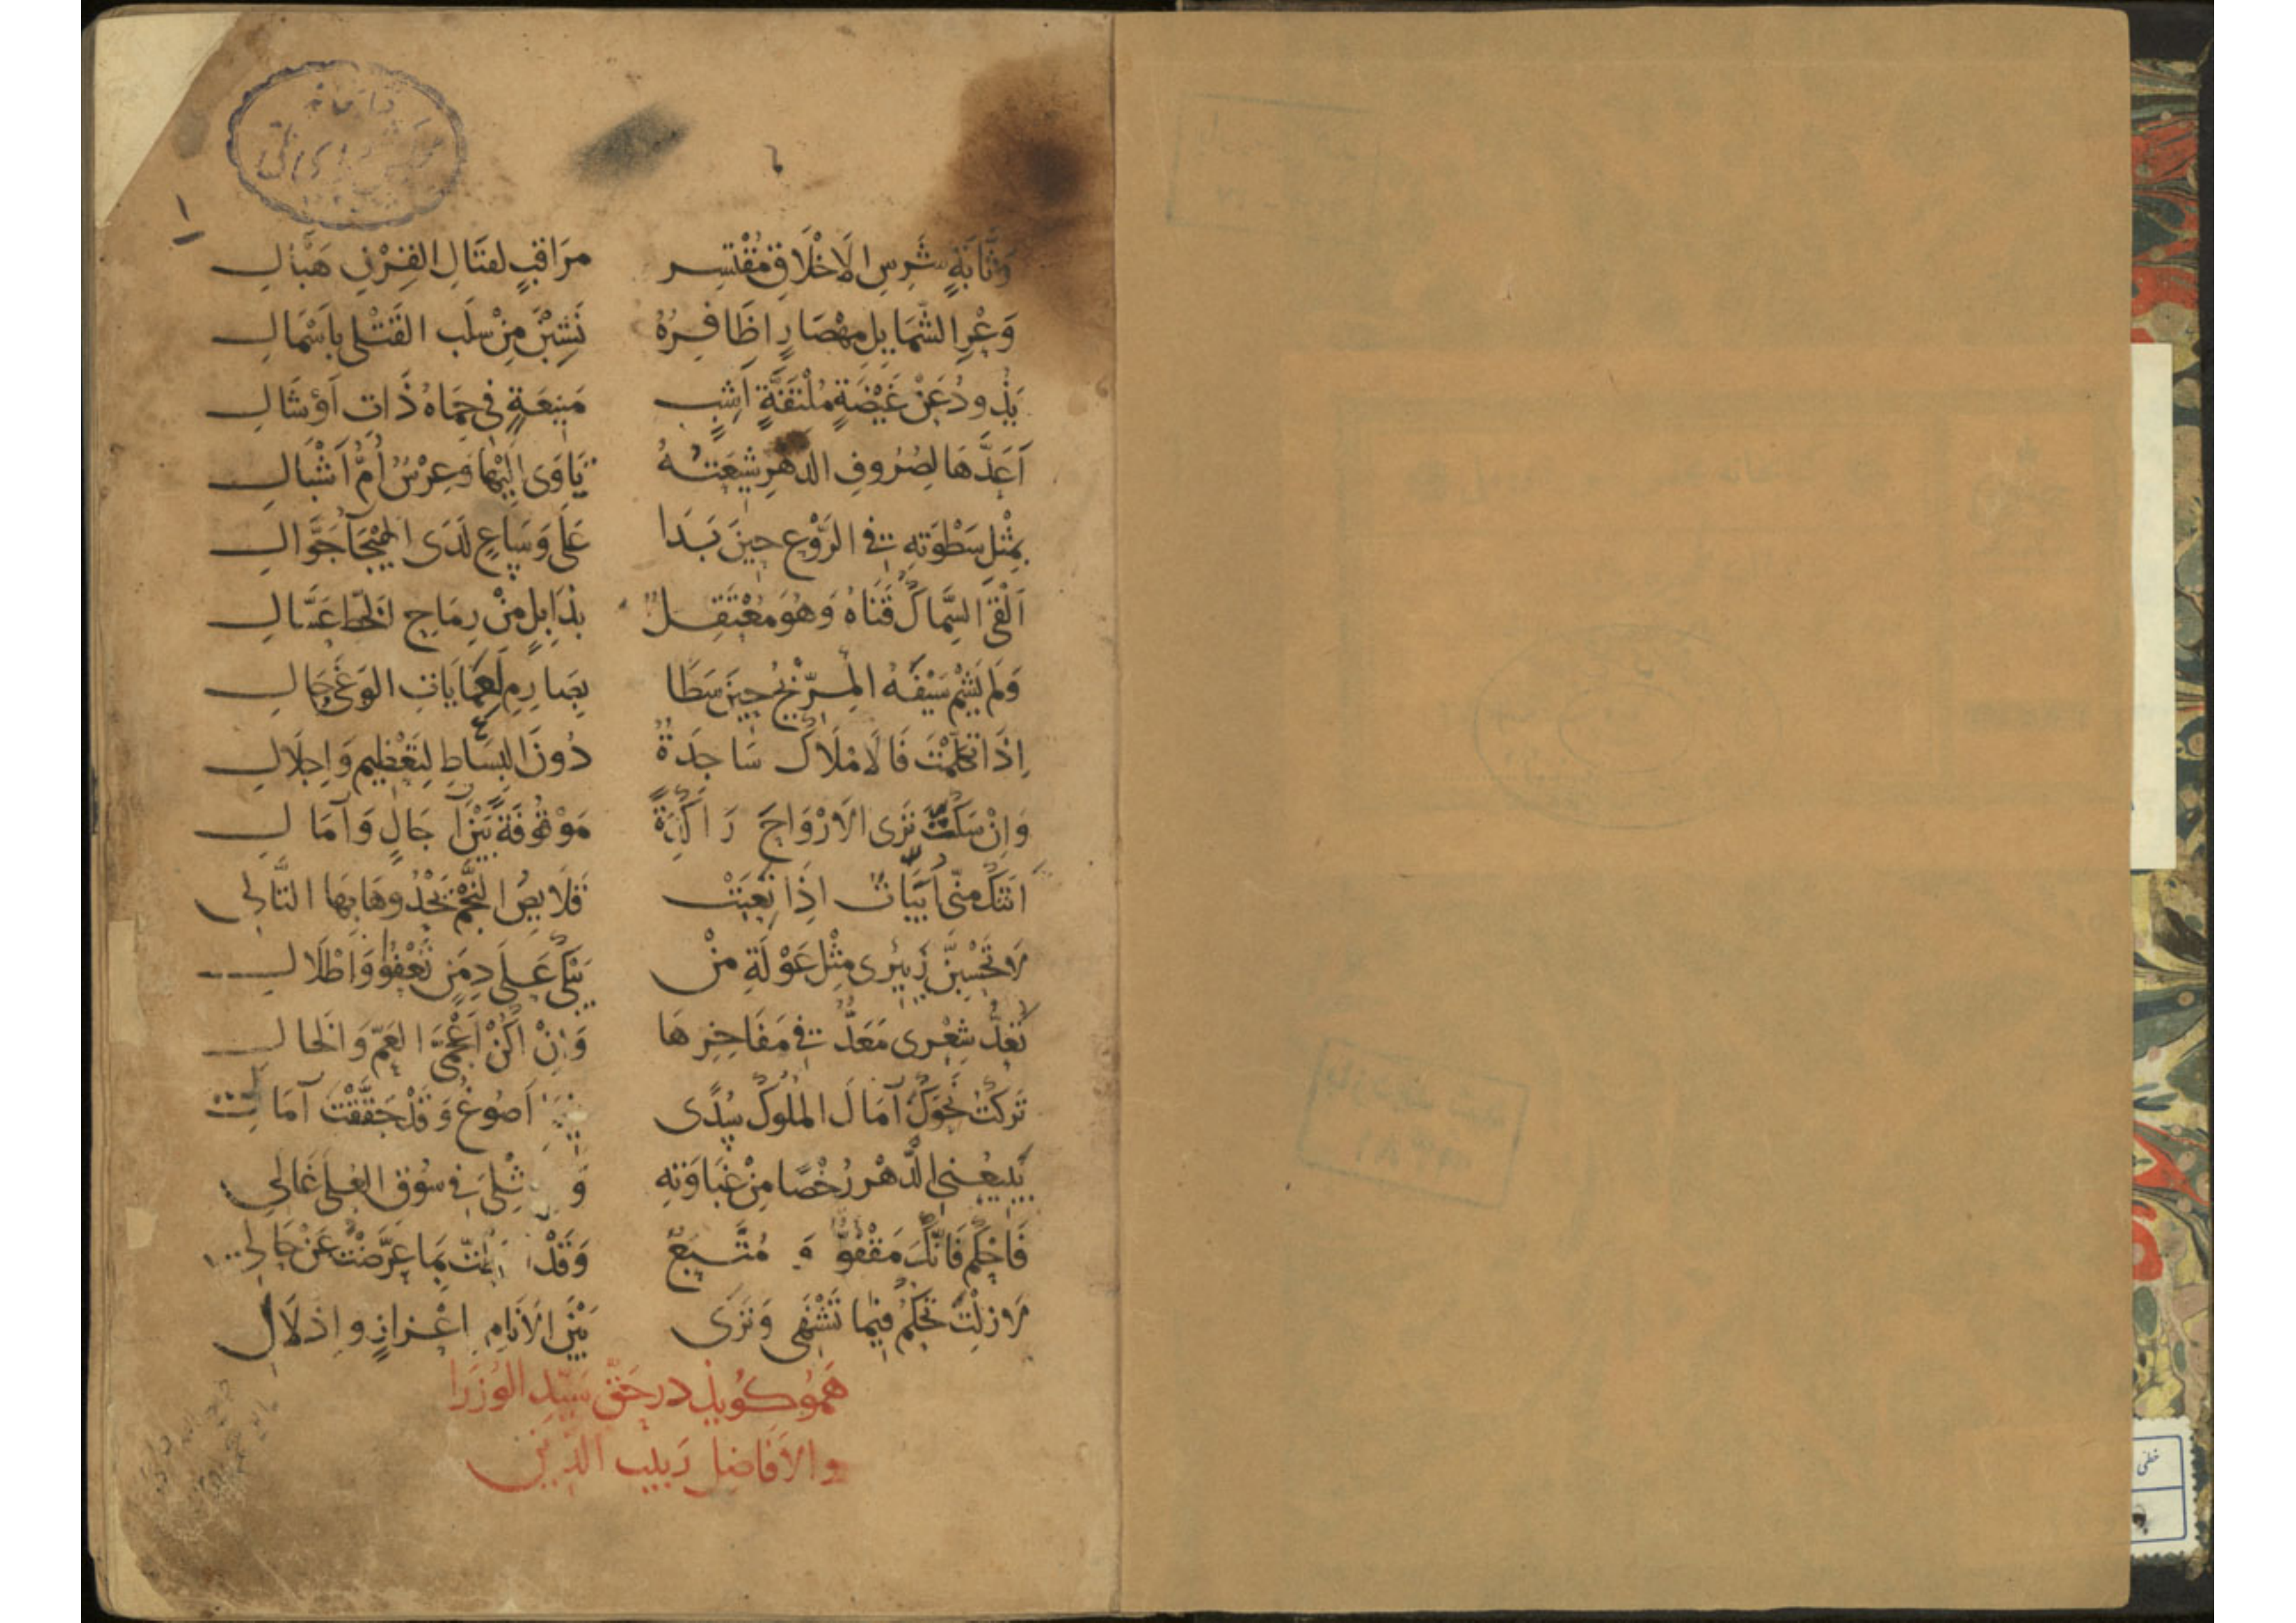 وَثَّابَةٍ شَرِسِ الْاَخْلَاقِ مُقْتَسِرٍ مرَاقبٍ لقتَالِ القِرْنِ هَبَّالِ
وَعْرِ الشّمَايِلِ مِهْصَارٍ اظَافِرُهُ نَشِبْنَ مِنْ سلَب القَتْلى باَسْمَالِ
يَذودُ عَنْ غَيْضَةٍ مُلْتَفَّةٍ اَشِبٍ مَنيعَةٍ فى حِمَاهُ ذَاتِ اَوْشَالِ
اَعَدَّهَا لصُرُوفِ الدهرِ شِيعَتُهُ يَاوَى اِلَيْهَا وَعِرْسٌ أُمُّ اَشْبَالِ
بِمثْلِ سَطْوَتِهِ فى الرَّوْعِ حِينَ بَدَا عَلَى وَسَاعٍ لَدَى الهَيْجَا جَوَّالِ
اَلْقَى السِّمَاكُ قَنَاهُ وَهُوَ مُعْتَقِلٌ بذَابِلٍ مِنْ رِمَاحِ الخَطِّ عَسَّالِ
وَلَم يَشِمْ سَيْفَهُ المِرّيْخُ حِينَ سَطَا بِصَارِمٍ لعَمَايَاتِ الوَغَى جَالِ
اِذَا تكَلَّمْتَ فَالاَمْلَاكُ سَاجِدَةٌ دُونَ البِسَاطِ لِتَعْظِيمٍ وَاِجلَالِ
وَاِنْ سَكَتَّ تَرَى الاَرْوَاحَ رَاكِدَةً مَوْقُوفَةً بَيْنَ آجَالٍ وَآمَالِ
اَتَتْكَ مِنّى اَبيَاتٌ اِذَا تَعِبَتْ قَلَايصُ النَّجْمِ يَحْدُوهَا بِهَا التَّالِى
لَا تَحْسِبَنَّ زَئِيرى مِثْلَ عَوْلَةِ مَنْ يَبْكى عَلَى دِمَنٍ تَعْفُو وَاَطْلَالِ
تَعُدُّ شِعْرى مَعَدٌّ فى مَفَاخِرِهَا وَاِنْ اَكُنْ اَعْجَمىَّ العَمِّ وَالخَالِ
تَركْتُ نَحْوَكَ آمَالَ المُلُوكِ سُدًى اَصُوغُ وَقَدْ حَقَّقْتَ آمَالِى
يَبِيعُنى الدَّهْرُ رُخْصًا مِنْ غَبَاوَتِهِ وَ ثْلِىَ فى سُوقِ العُلَى غَالِى
فَاحْكُمْ فَاِنَّكَ مَقْفُوٌّ وَ مُتَّبَعٌ وَقَدْ بِمَا عَرَّضْتُ عَنْ حَالِى
لَا زِلْتَ تَحْكُمُ فِيمَا تَشْتَهِى وَتَرَى بَيْنَ الاَنَامِ اعْزازٍ وِاذلَالِ
هَموُ كُويَذ درحَقّ سَيّدِ الوُزَرَا
والاَفاضِل رَبيب الدّين